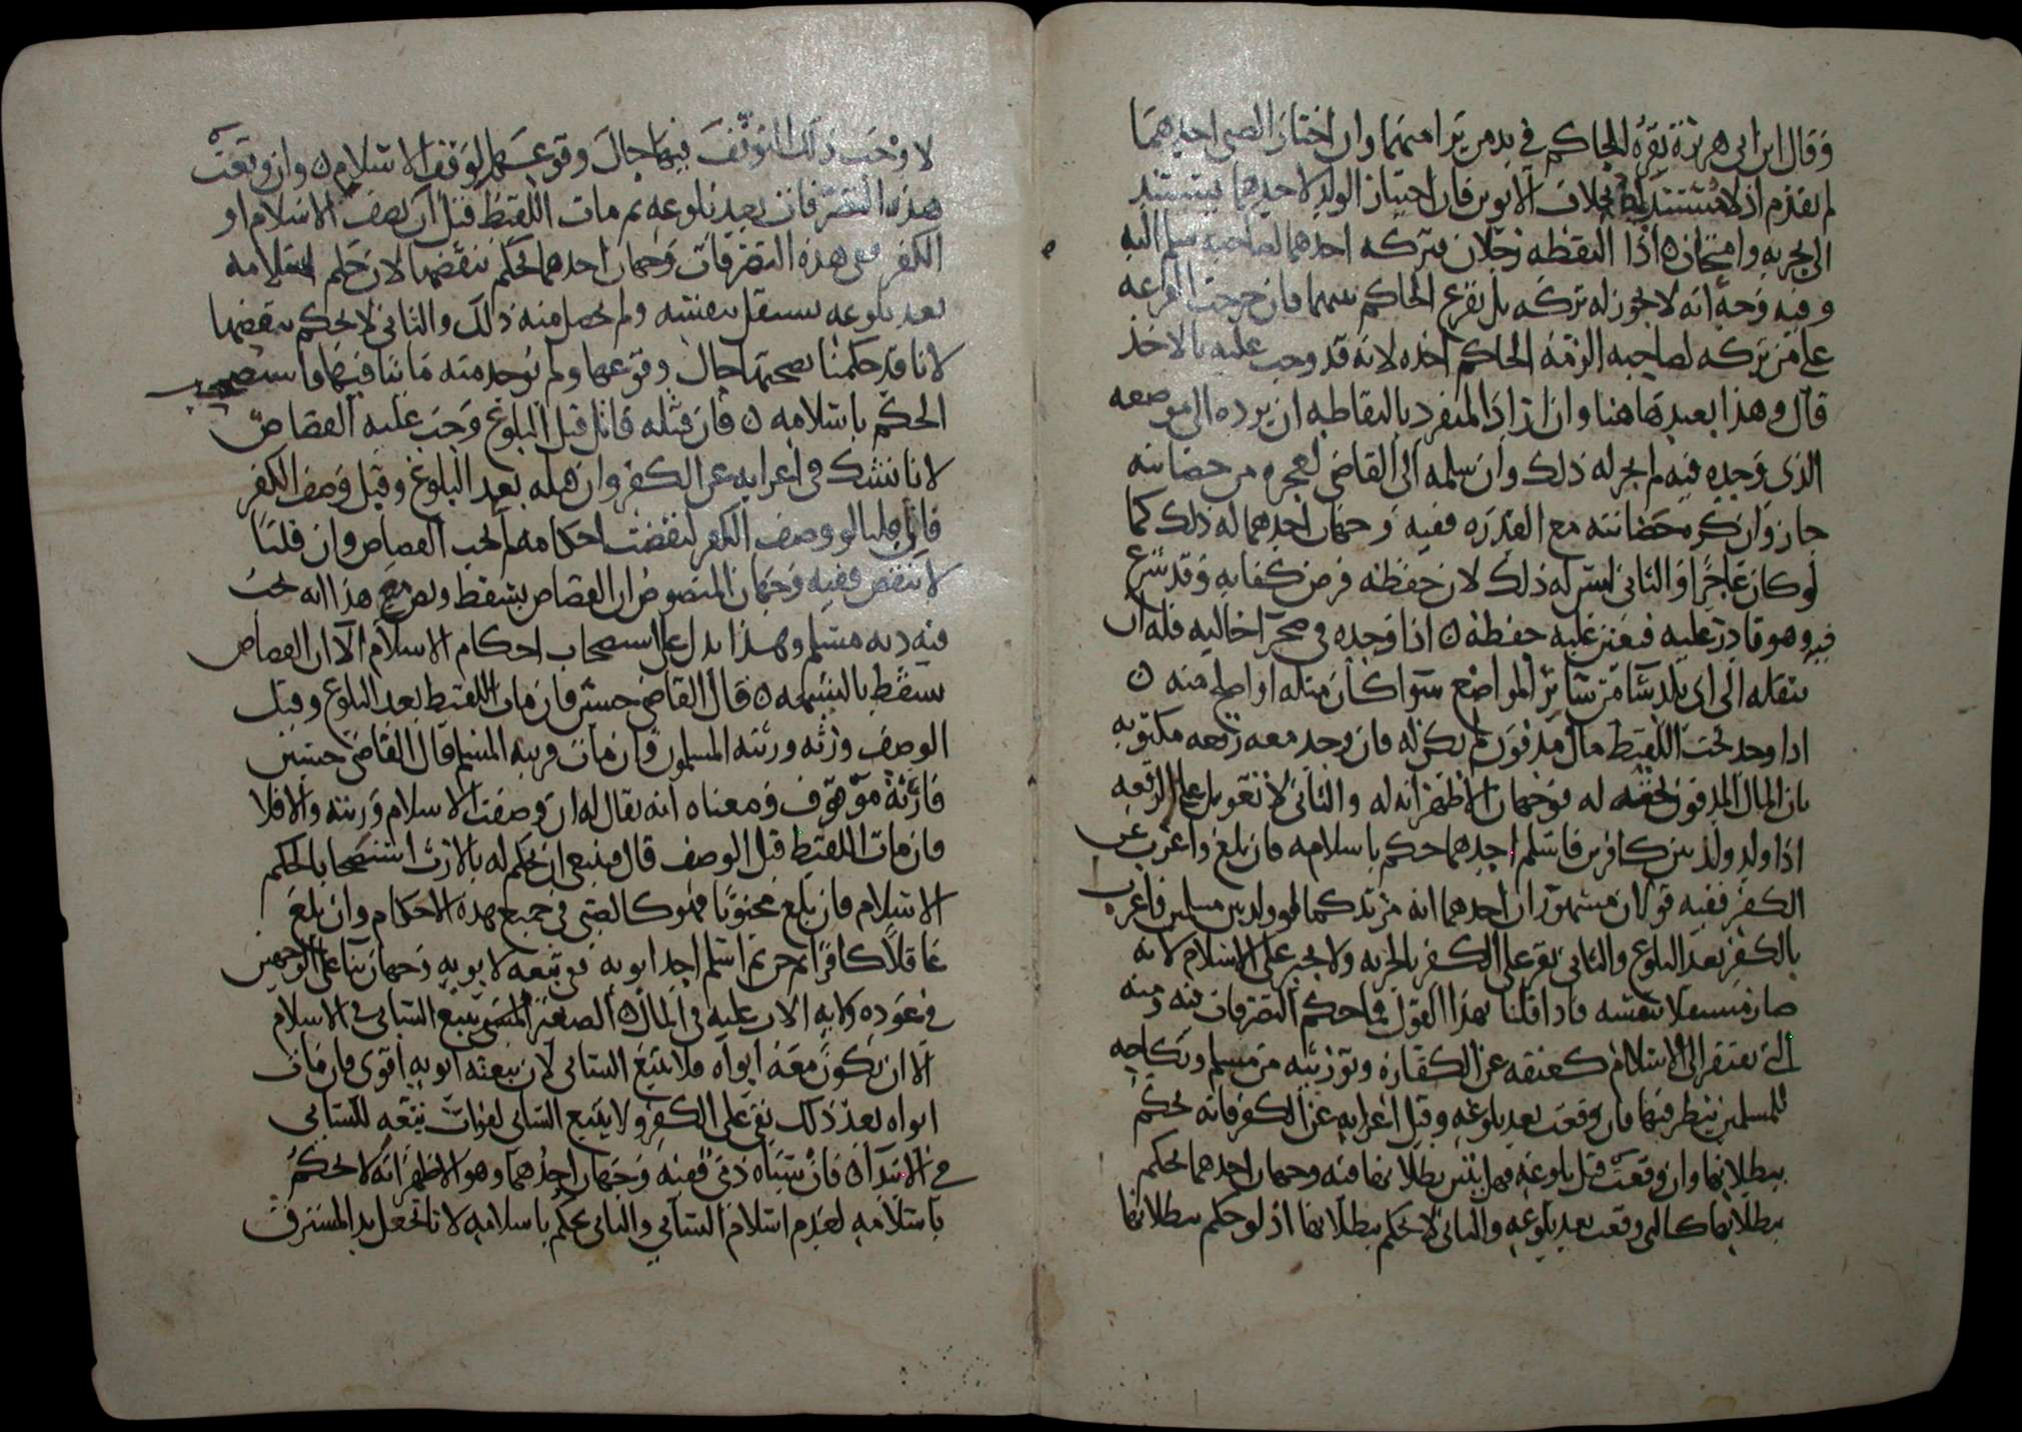 وقال ابن ابي هريرة يقره الحاكم في يد من يرا منهما وان اختار الصبي احدهما
لم يقدم اذ لا مستند له بخلاف الابوين فان اختيار الولد لاحدهما يستند
الى تجربة وامتحان ه اذا التقطه رجلان فتركه احدهما لصاحبه سلم اليه
وفيه وجه انه لا يجوز له تركه بل يقرع الحاكم بينهما فان خرجت القرعة
على من تركه لصاحبه الزمه الحاكم اخذه لانه قد وجب عليه بالاخذ
قال وهذا بعيد هاهنا وان اراد المنفرد بالتقاطه ان يرده الى موضعه
الذي وجده فيه لم يجز له ذلك وان سلمه الى القاضي لعجزه من حضانته
جاز وان كره حضانته مع القدرة ففيه وجهان احدهما له ذلك كما
لو كان عاجزا والثاني ليس له ذلك لان حفظه فرض كفاية وقد شرع
فيه وهو قادر عليه فتعين عليه حفظه ه اذا وجده في صحرا خالية فله ان
ينقله الى اي بلد شا من سائر المواضع سوا كان مثله او اصلح منه ه
اذا وجد تحت اللقيط مال مدفون لم يكن له فان وجد معه رقعة مكتوبة
بان المال المدفون تحته له فوجهان الاظهر انه له والثاني لا تعويل على الرقعة
اذا ولد ولد بين كافرين فاسلم احدهما حكم باسلامه فان بلغ واعرب عن
الكفر ففيه قولان مشهوران احدهما انه مرتد كما لو ولد بين مسلمين فاعرب
بالكفر بعد البلوغ والثاني يقر على الكفر بالجزية ولا يجبر على الاسلام لانه
صار مستقلا بنفسه فاذا قلنا بهذا القول فما حكم التصرفات فيه ومنه
التي تفتقر الى الاسلام كعتقه عن الكفارة وتوريثه من مسلم ونكاحه
للمسلمين ينظر فيها فان وقعت بعد بلوغه وقبل اعرابه عن الكفر فانه نحكم
ببطلانها وان وقعت قبل بلوغه فهل يتبين بطلانها فيه وجهان احدهما نحكم
ببطلانها كالتي وقعت بعد بلوغه والثاني لا نحكم ببطلانها اذ لو حكم ببطلانها
لاوجب ذلك التوقف فيها حال وقوعها لوقف الاسلام ه وان وقعت
هذه التصرفات بعد بلوغه ثم مات اللقيط قبل ان يصف الاسلام او
الكفر ففي هذه التصرفات وجهان احدهما نحكم بنقضها لان حكم اسلامه
بعد بلوغه يستقل بنفسه ولم يحصل منه ذلك والثاني لا نحكم بنقضها
لانا قد حكمنا بصحتها حال وقوعها ولم يوجد منه ما ينافيها فاستصحب
الحكم باسلامه ه فان قتله قاتل قبل البلوغ وجب عليه القصاص
لانا نشك في اعرابه عن الكفر وان قتله بعد البلوغ وقبل وصف الكفر
فان قلنا لو وصف الكفر لنقضت احكامه لم يجب القصاص وان قلنا
لا تنقض ففيه وجهان المنصوص ان القصاص يسقط ونص مع هذا انه يجب
فيه دية مسلم وهذا يدل على استصحاب احكام الاسلام الا ان القصاص
يسقط بالشبهة ه قال القاضي حسين فان مات اللقيط بعد البلوغ وقبل
الوصف ورثه ورثته المسلمون فان مات قريبه المسلم قال القاضي حسين
فارثه موقوف ومعناه انه يقال له ان وصفت الاسلام ورثته والا فلا
فان مات اللقيط قبل الوصف قال فينبغي ان يحكم له بالارث استصحابا لحكم
الاسلام فان بلغ مجنونا فهو كالصبي في جميع هذه الاحكام وان بلغ
عاقلا كافرا ثم جن ثم اسلم احد ابويه ففي تبعه لابويه وجهان بنا على الوجهين
في عود ولاية الاب عليه في المال ه الصغير المسبي يتبع السابي في الاسلام
الا ان يكون معه ابواه فلا يتبع السابي لان تبعته ابويه اقوى فان مات
ابواه بعد ذلك بقي على الكفر ولا يتبع السابي لفوات تبعه للسابي
في الابتدا ه فان سباه ذمي ففيه وجهان احدهما وهو الاظهر انه لا نحكم
باسلامه لعدم اسلام السابي والثاني نحكم باسلامه لانا نجعل يد المسترق